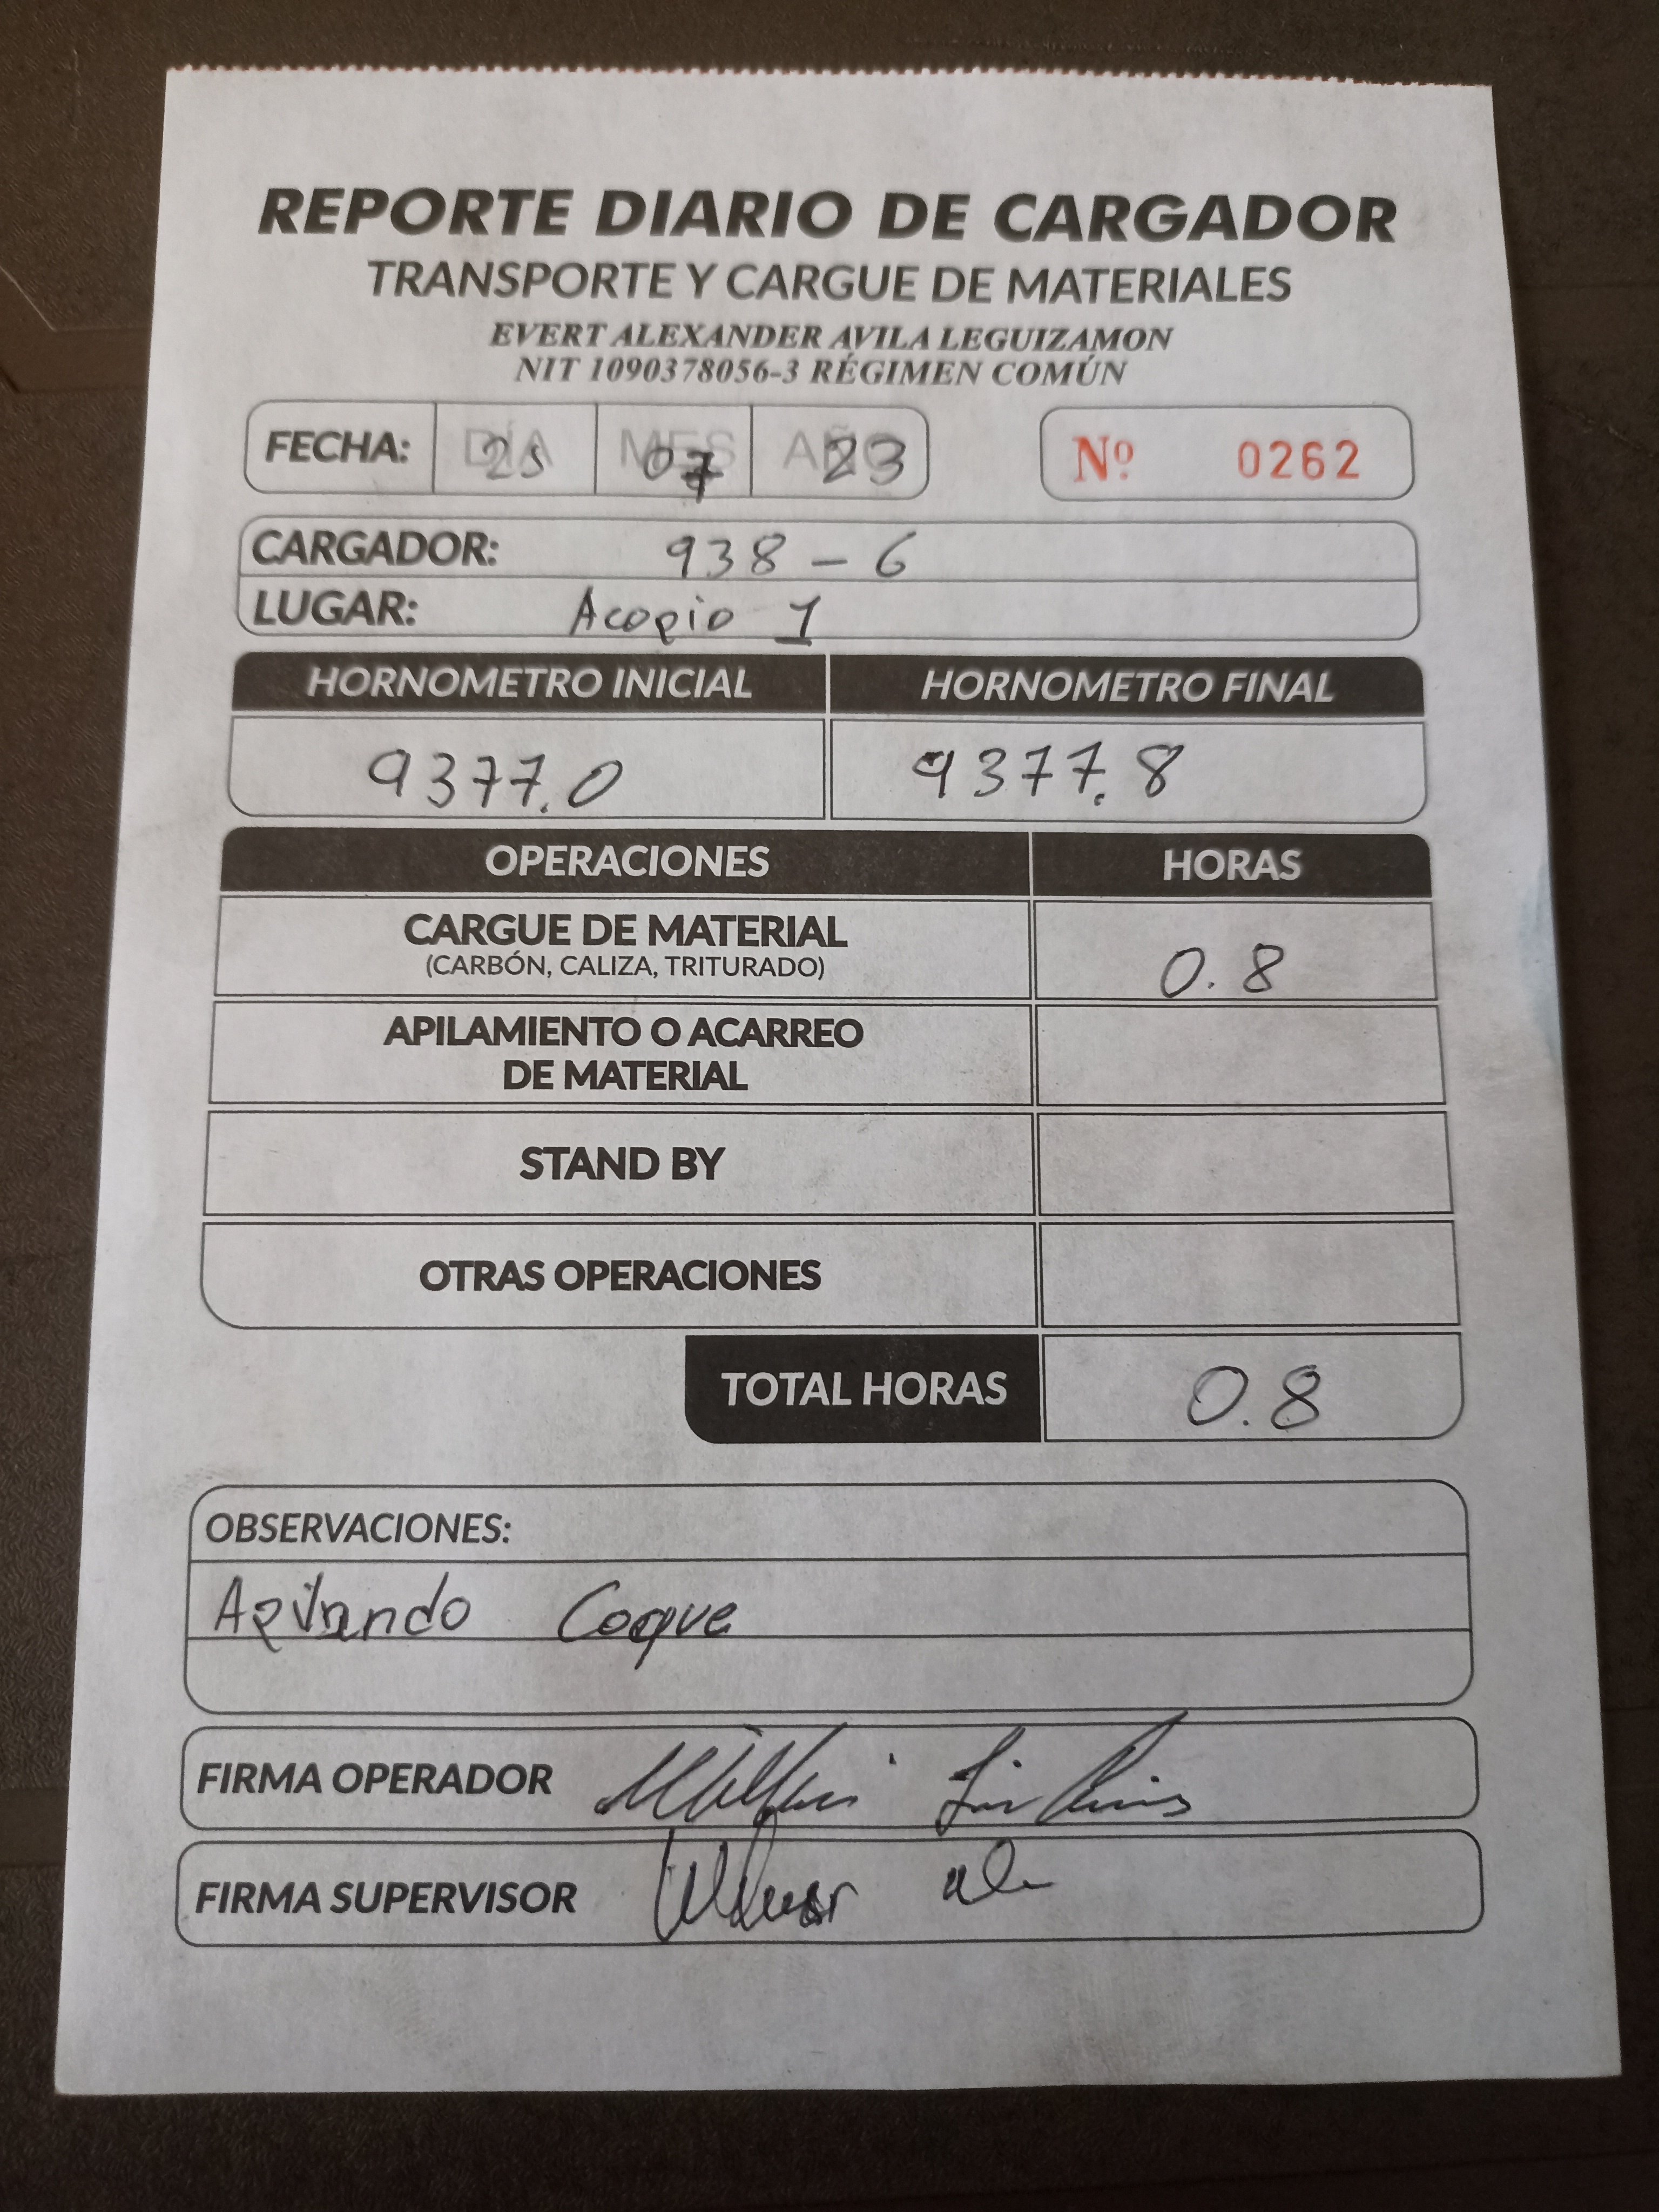 REPORTE DIARIO DE CARGADOR
TRANSPORTE Y CARGUE DE MATERIALES
EVERT ALEXANDER AVILA LEGUIZAMON
NIT 1090378056-3 RÉGIMEN COMÚN
FECHA: DÍA 25 MES 07 AÑO 23 Nº 0262
CARGADOR: 938 - 6
LUGAR: Acopio 1
HORNOMETRO INICIAL HORNOMETRO FINAL
9377.0 9377.8
OPERACIONES HORAS
CARGUE DE MATERIAL
(CARBÓN, CALIZA, TRITURADO) 0.8
APILAMIENTO O ACARREO
DE MATERIAL
STAND BY
OTRAS OPERACIONES
TOTAL HORAS 0.8
OBSERVACIONES:
Apilando Coque
FIRMA OPERADOR
FIRMA SUPERVISOR